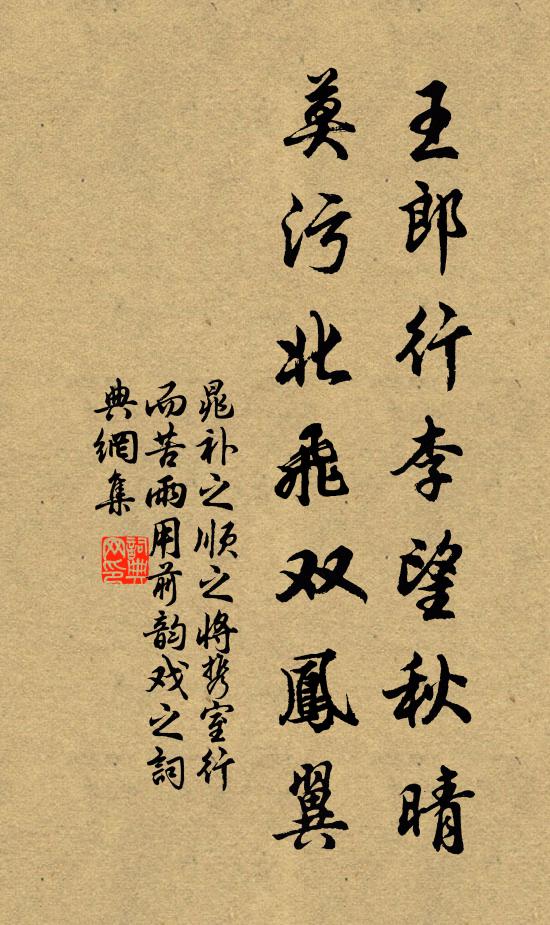 王郎行李望秋晴
莫污北飞双鳳翼
晁补之顺之将携室行
而苦雨用前韵戏之詞
典網集
詞典網印